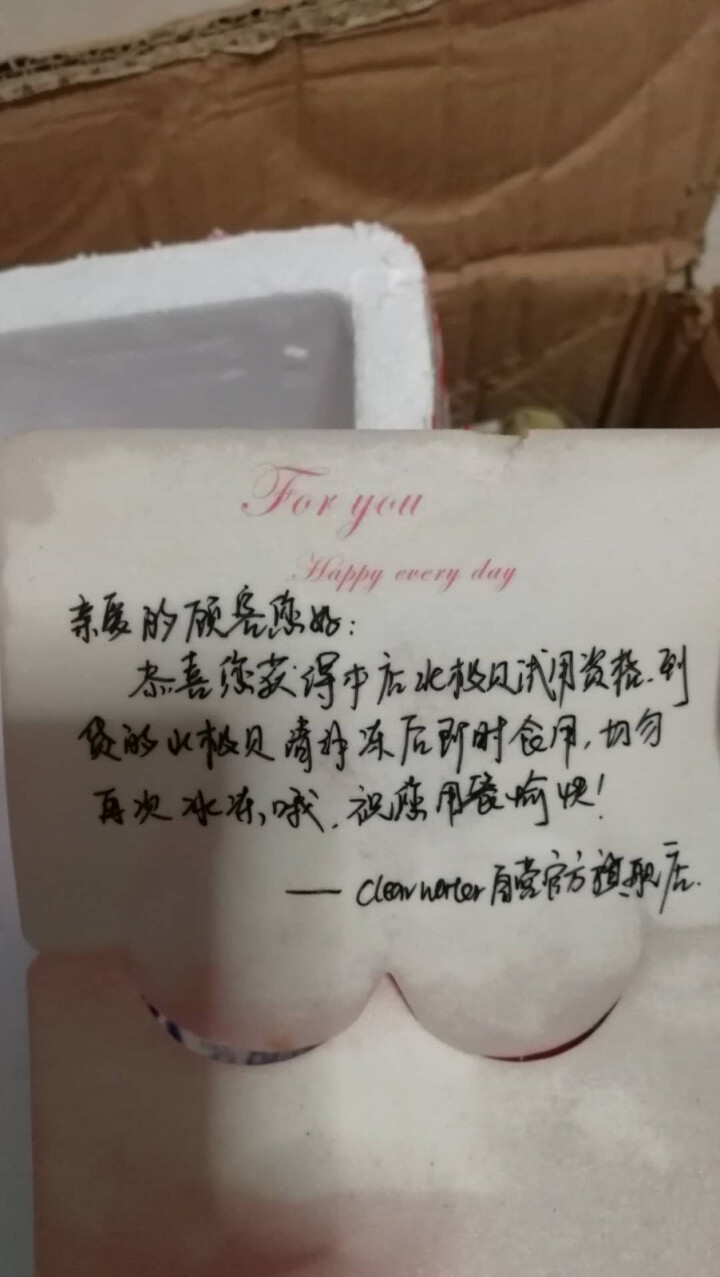 For you
Happy every day
亲爱的顾客您好：
恭喜您获得本店北极贝试用资格.到
货的北极贝请解冻后即时食用,切勿
再次冰冻哦,祝您用餐愉快！
— Clearwater自营官方旗舰店.